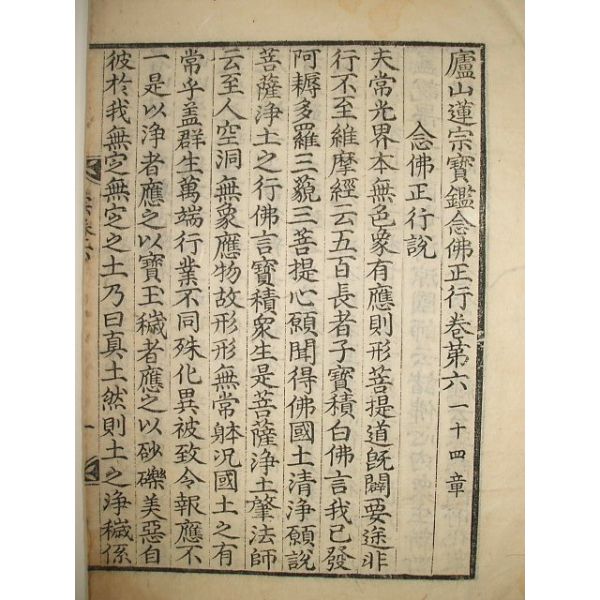 廬山蓮宗寶鑑念佛正行卷第六 一十四章
念佛正行說
夫常光界本無色象有應則形菩提道旣闢要途非
行不至維摩經云五百長者子寶積白佛言我已發
阿耨多羅三藐三菩提心願聞得佛國土清淨願說
菩薩淨土之行佛言寶積衆生是菩薩淨土肇法師
云至人空洞無象應物故形形無常躰况國土之有
常乎盖群生萬端行業不同殊化異被致令報應不
一是以淨者應之以寶玉穢者應之以砂礫美惡自
彼於我無定無定之土乃曰真土然則土之淨穢係